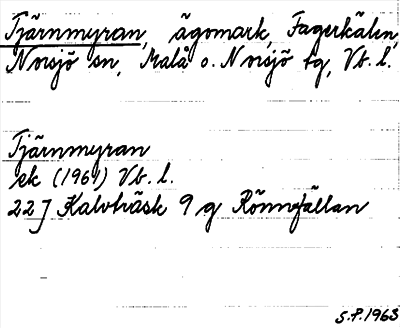 Tjärnmyran, ägomark, Fagerkälen,
Norsjö sn, Malå o. Norsjö tg, Vb. l.
Tjärnmyran
ek (1961) Vb. l.
22J Kalvträsk 9 g Rönnfällan
S.P. 1963